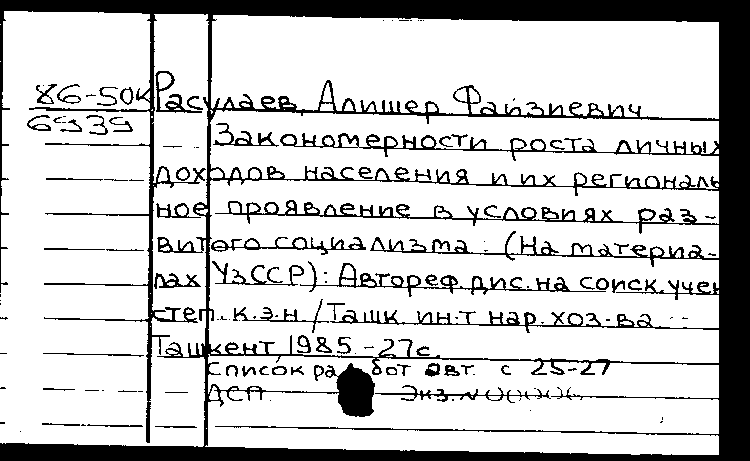 86-50к Расулаев, Алишер Файзиевич
6939
Закономерности роста личных
доходов населения и их региональ
ное проявление в условиях раз-
витого социализма : (На материа-
лах УзССР): Автореф. дис. на соиск. учен
степ. к.э.н. / Ташк. ин-т нар. хоз-ва. -
Ташкент, 1985. - 27с.
Список работ авт. с 25-27
ДСП Экз. N 00006